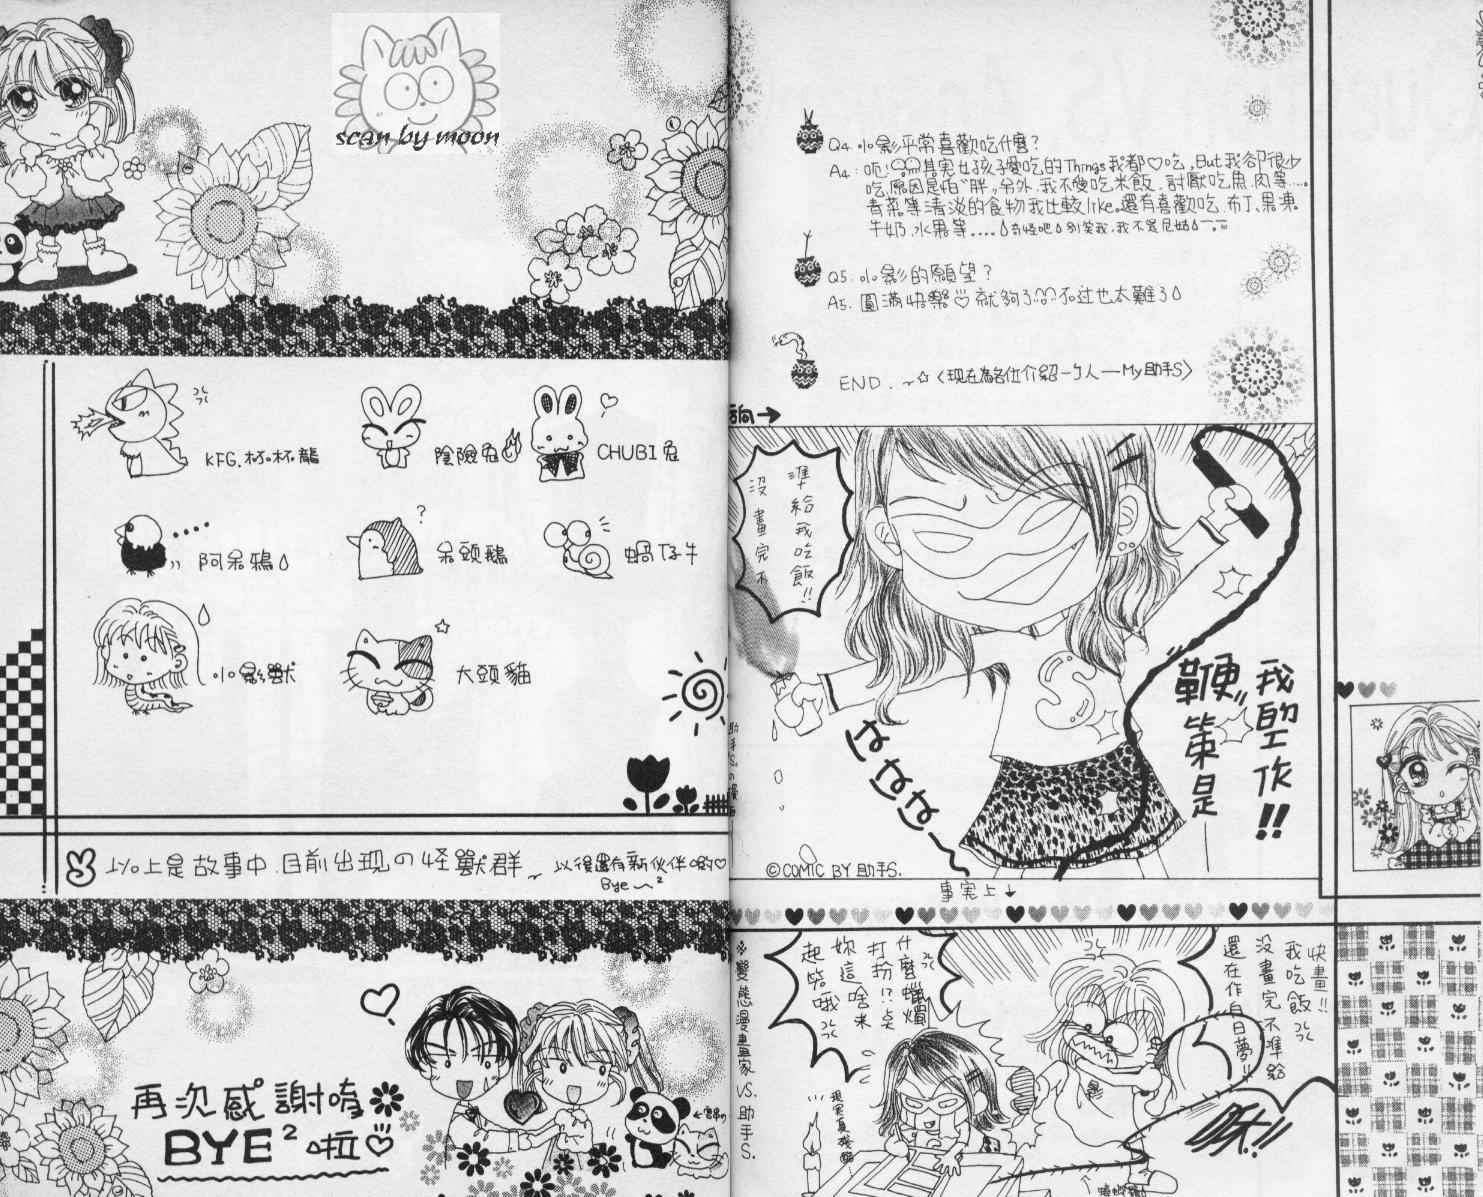 scan by moon
KFG.杯杯龍
陰險兔
CHUBI兔
阿呆鴉
呆頭鵝
蝸仔牛
小影獸
大頭貓
以上是故事中.目前出現の怪獸群~以後還有新伙伴喲♡
Bye~²
再次感謝唷
BYE² 啦♡
Q4.小影平常喜歡吃什麼?
A4:呃!其実女孩子愛吃的Things我都♡吃,But我卻很少
吃,原因是怕〝胖〞。另外,我不愛吃米飯.討厭吃魚.肉等....
青菜等清淡的食物我比較like。還有喜歡吃.布丁、果凍
牛奶.水果等....奇怪吧 別笑我,我不是尼姑
Q5.小影的願望?
A5.圓滿快樂♡就夠了 不过也太難了
END.~☆〈現在為各位介紹一ㄅ人—My助手S〉
沒畫完不
準給我吃飯!!
S
我的工作!!
〝鞭〞策是—
ははは~
©COMIC BY 助手S.
事実上↓
※變態漫畫家 VS. 助手S.
什麼蠟燭
打扮!?ㄓ
妳這啥米
起笑哦
快畫!!
我吃飯
沒畫完不準給
還在作白日夢!!